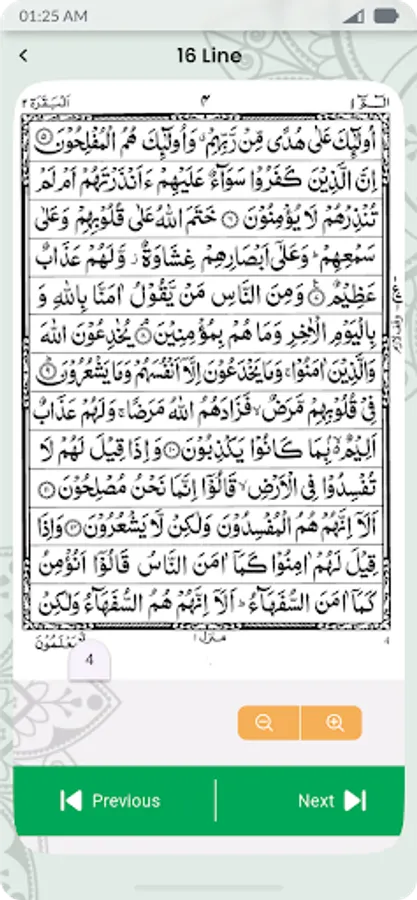 01:25 AM
16 Line
الٓمّٓ ١ ۴ البقرة ٢
اُولٰٓئِكَ عَلٰى هُدًى مِّنْ رَّبِّهِمْ ۙ وَاُولٰٓئِكَ هُمُ الْمُفْلِحُوْنَ ۝۵
اِنَّ الَّذِيْنَ كَفَرُوْا سَوَآءٌ عَلَيْهِمْ ءَاَنْذَرْتَهُمْ اَمْ لَمْ
تُنْذِرْهُمْ لَا يُؤْمِنُوْنَ ۝۶ خَتَمَ اللّٰهُ عَلٰى قُلُوْبِهِمْ وَعَلٰى
سَمْعِهِمْ ؕ وَعَلٰٓى اَبْصَارِهِمْ غِشَاوَةٌ ؗ وَّلَهُمْ عَذَابٌ
عَظِيْمٌ ۝۷ وَمِنَ النَّاسِ مَنْ يَّقُوْلُ اٰمَنَّا بِاللّٰهِ وَ
بِالْيَوْمِ الْاٰخِرِ وَمَا هُمْ بِمُؤْمِنِيْنَ ۝۸ يُخٰدِعُوْنَ اللّٰهَ
وَالَّذِيْنَ اٰمَنُوْا ۚ وَمَا يَخْدَعُوْنَ اِلَّآ اَنْفُسَهُمْ وَمَا يَشْعُرُوْنَ ۝۹
فِيْ قُلُوْبِهِمْ مَّرَضٌ ۙ فَزَادَهُمُ اللّٰهُ مَرَضًا ۚ وَلَهُمْ عَذَابٌ
اَلِيْمٌۢ ۙ بِمَا كَانُوْا يَكْذِبُوْنَ ۝۱۰ وَاِذَا قِيْلَ لَهُمْ لَا
تُفْسِدُوْا فِي الْاَرْضِ ۙ قَالُوْٓا اِنَّمَا نَحْنُ مُصْلِحُوْنَ ۝۱۱
اَلَآ اِنَّهُمْ هُمُ الْمُفْسِدُوْنَ وَلٰكِنْ لَّا يَشْعُرُوْنَ ۝۱۲ وَاِذَا
قِيْلَ لَهُمْ اٰمِنُوْا كَمَآ اٰمَنَ النَّاسُ قَالُوْٓا اَنُؤْمِنُ
كَمَآ اٰمَنَ السُّفَهَآءُ ؕ اَلَآ اِنَّهُمْ هُمُ السُّفَهَآءُ وَلٰكِنْ
4 منزل ١
4
Previous Next